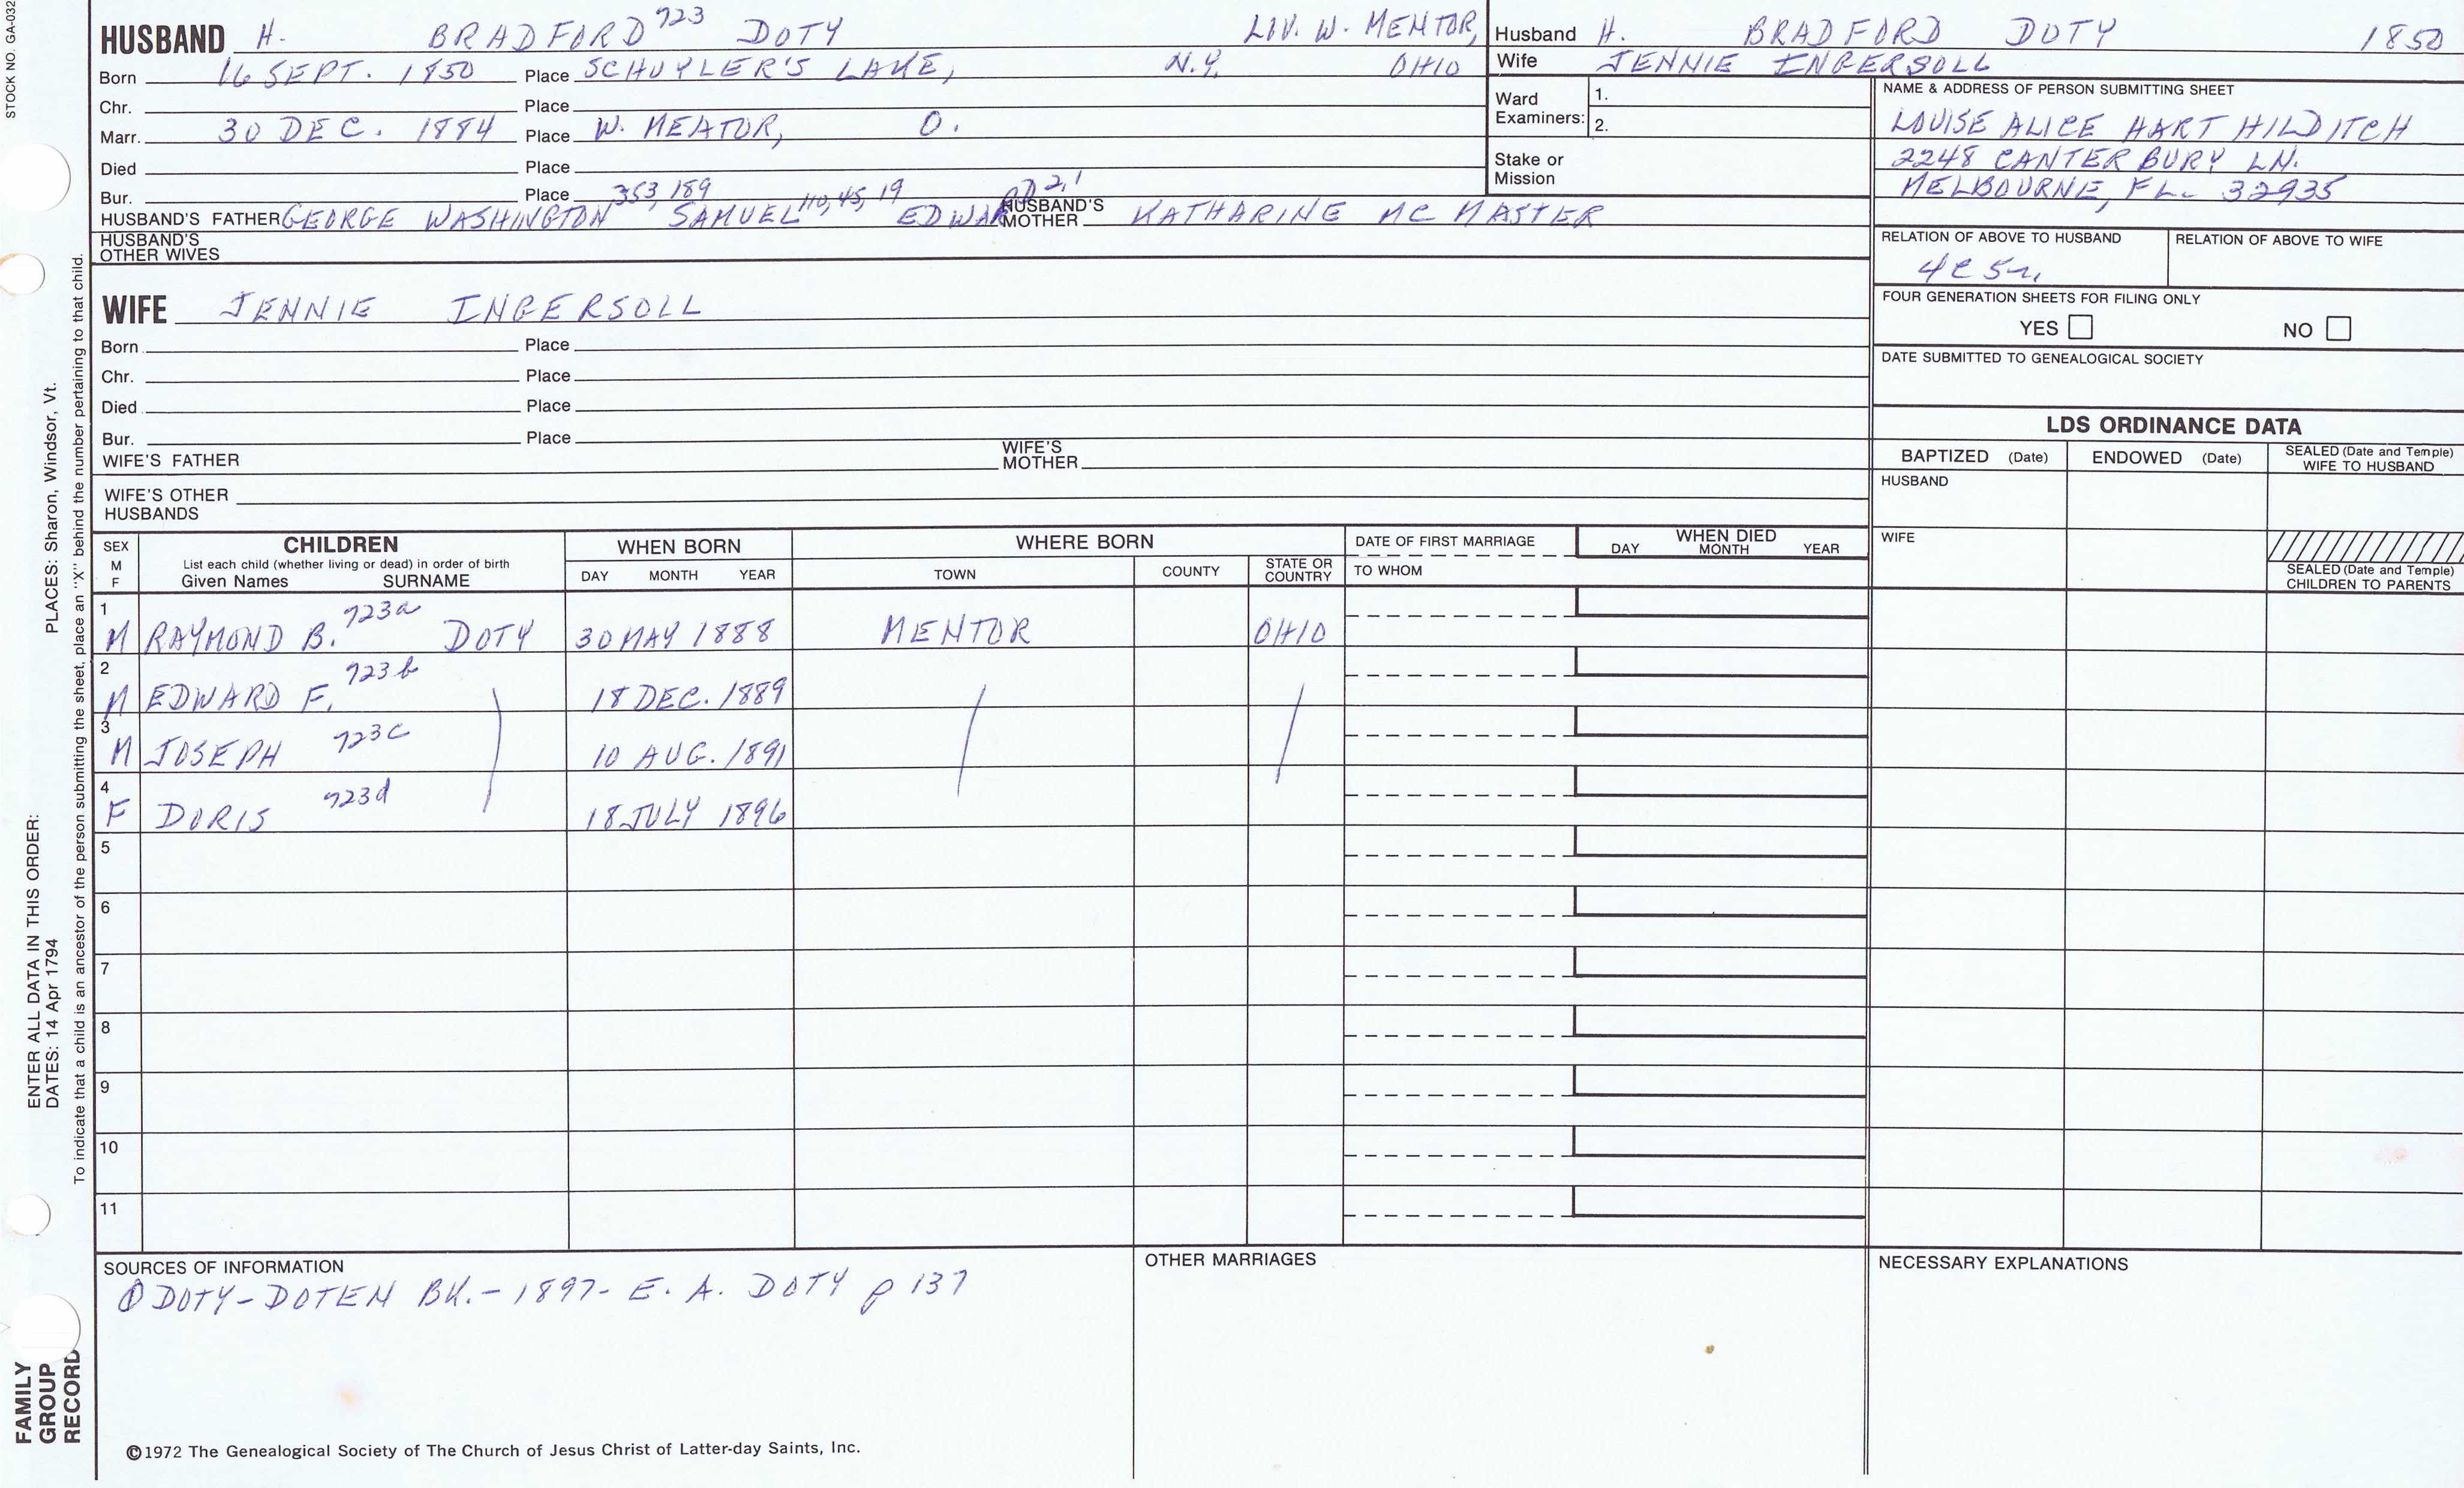 STOCK NO. GA-032
HUSBAND H. BRADFORD 723 DOTY LIV. W. MENTOR,
Born 16 SEPT. 1850 Place SCHUYLER'S LAKE, N.Y. OHIO
Chr. Place
Marr. 30 DEC. 1884 Place W. MENTOR, O.
Died Place
Bur. Place
353, 189 110, 45, 19 D 2, 1
HUSBAND'S FATHER GEORGE WASHINGTON SAMUEL EDWA HUSBAND'S MOTHER KATHARINE MC MASTER
HUSBAND'S OTHER WIVES
WIFE JENNIE INGERSOLL
Born Place
Chr. Place
Died Place
Bur. Place
WIFE'S FATHER WIFE'S MOTHER
WIFE'S OTHER HUSBANDS
Husband H. BRADFORD DOTY 1850
Wife JENNIE INGERSOLL
Ward Examiners: 1.
2.
Stake or Mission
NAME & ADDRESS OF PERSON SUBMITTING SHEET
LOUISE ALICE HART HILDITCH
2248 CANTERBURY LN.
MELBOURNE, FL. 32935
RELATION OF ABOVE TO HUSBAND RELATION OF ABOVE TO WIFE
4C 5r.
FOUR GENERATION SHEETS FOR FILING ONLY
YES NO
DATE SUBMITTED TO GENEALOGICAL SOCIETY
LDS ORDINANCE DATA
BAPTIZED (Date) ENDOWED (Date) SEALED (Date and Temple) WIFE TO HUSBAND
HUSBAND
WIFE
SEALED (Date and Temple) CHILDREN TO PARENTS
SEX M F CHILDREN WHEN BORN WHERE BORN DATE OF FIRST MARRIAGE WHEN DIED
List each child (whether living or dead) in order of birth
Given Names SURNAME DAY MONTH YEAR TOWN COUNTY STATE OR COUNTRY TO WHOM DAY MONTH YEAR
1 M RAYMOND B. 723a DOTY 30 MAY 1888 MENTOR OHIO
2 M EDWARD F. 723b 18 DEC. 1889
3 M JOSEPH 723c 10 AUG. 1891
4 F DORIS 723d 18 JULY 1896
5
6
7
8
9
10
11
SOURCES OF INFORMATION
① DOTY-DOTEN BK. - 1897- E. A. DOTY p 137
OTHER MARRIAGES
NECESSARY EXPLANATIONS
©1972 The Genealogical Society of The Church of Jesus Christ of Latter-day Saints, Inc.
FAMILY GROUP RECORD
ENTER ALL DATA IN THIS ORDER:
DATES: 14 Apr 1794 PLACES: Sharon, Windsor, Vt.
To indicate that a child is an ancestor of the person submitting the sheet, place an "X" behind the number pertaining to that child.